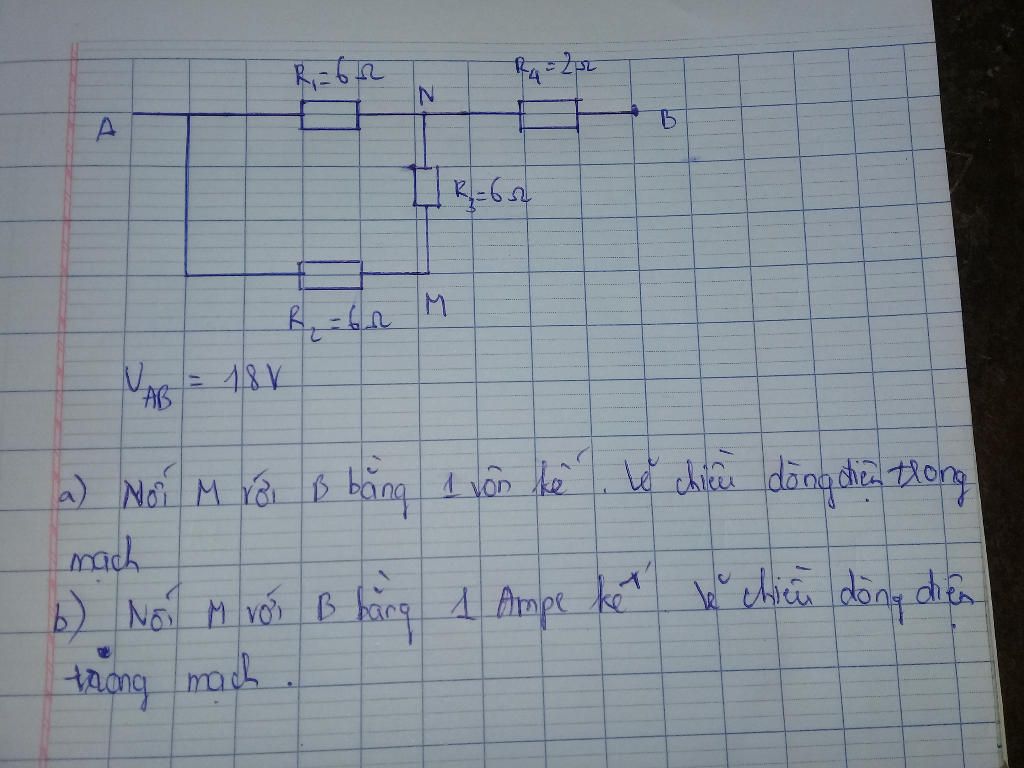 R₁=6Ω
R₄=2Ω
N
A
B
R₃=6Ω
R₂=6Ω
M
U_AB = 18V
a) Nối M với B bằng 1 vôn kế. Vẽ chiều dòng điện trong
mạch
b) Nối M với B bằng 1 Ampe kế vẽ chiều dòng điện
trong mạch.